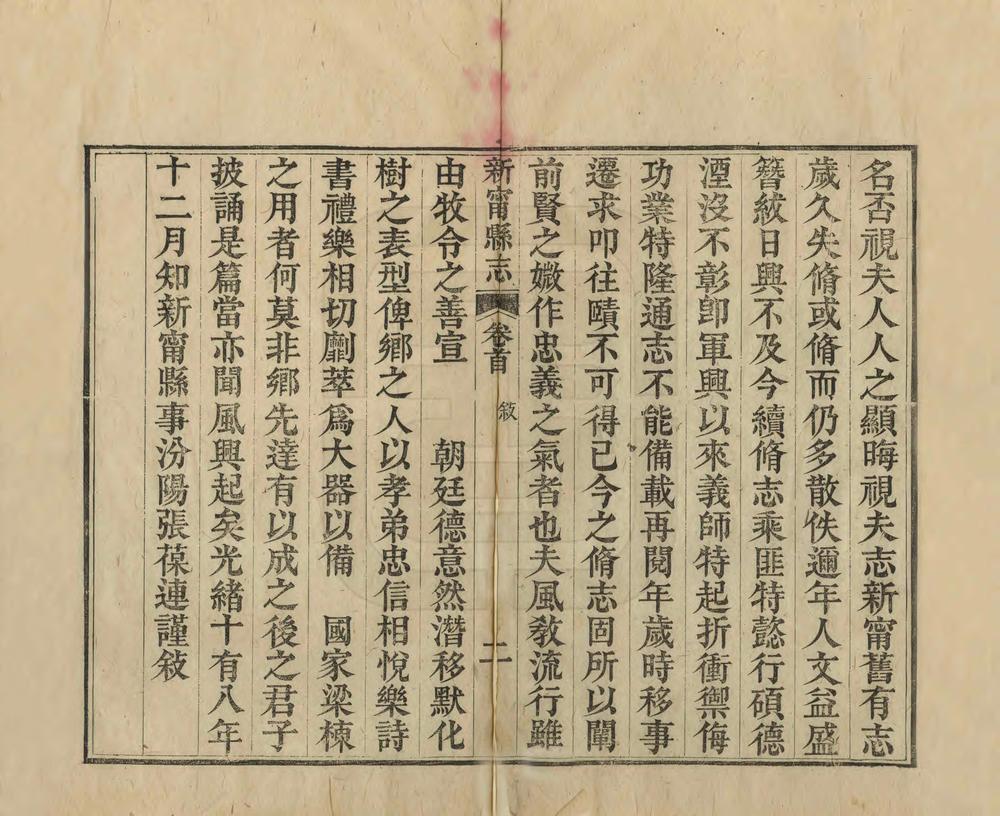 名否視夫人人之顯晦視夫志新甯舊有志
歲久失脩或脩而仍多散佚邇年人文益盛
簪紱日興不及今續脩志乘匪特懿行碩德
湮沒不彰卽軍興以來義師特起折衝禦侮
功業特隆通志不能備載再閱年歲時移事
遷求叩往賾不可得已今之脩志固所以闡
前賢之媺作忠義之氣者也夫風敎流行雖
新甯縣志
卷首
敘
二
由牧令之善宣　朝廷德意然潛移默化
樹之表型俾鄉之人以孝弟忠信相悅樂詩
書禮樂相切劘萃爲大器以備　國家梁棟
之用者何莫非鄉先達有以成之後之君子
披誦是篇當亦聞風興起矣光緒十有八年
十二月知新甯縣事汾陽張葆連謹敘